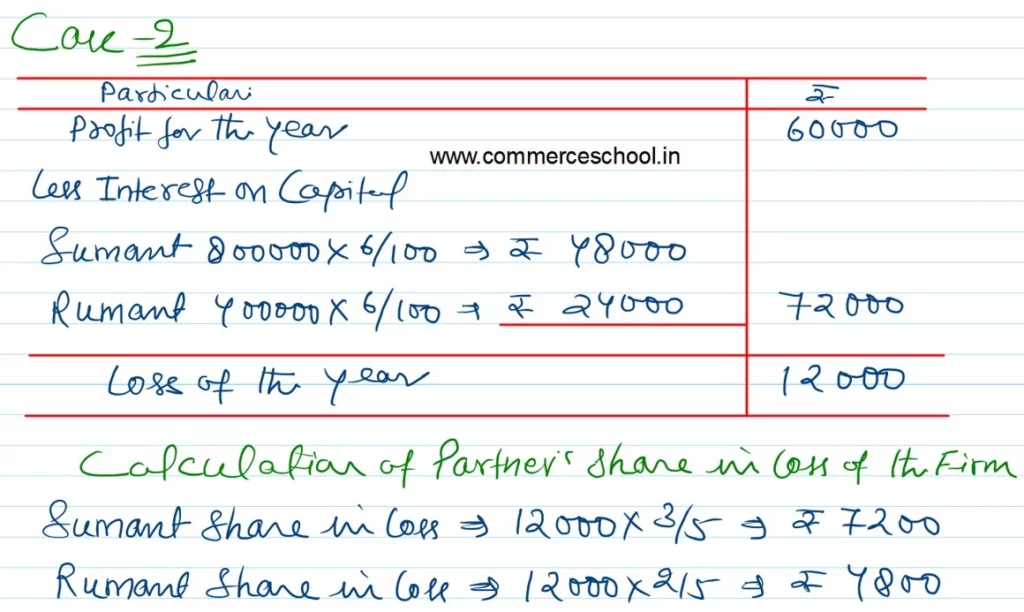 Case-2
Particulars ₹
Profit for the year 60000
www.commerceschool.in
Less Interest on Capital
Sumant 800000 x 6/100 ⇒ ₹ 48000
Rumant 400000 x 6/100 → ₹ 24000 72000
Loss of the year 12000
Calculation of Partner's Share in loss of the Firm
Sumant Share in loss ⇒ 12000 x 3/5 ⇒ ₹ 7200
Rumant Share in loss ⇒ 12000 x 2/5 ⇒ ₹ 4800